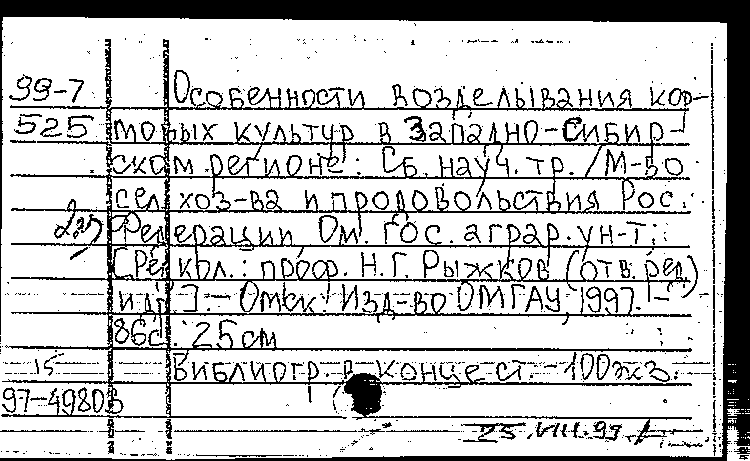 99-7 Особенности возделывания кор-
525 мовых культур в Западно-Сибир-
ском регионе: Сб. науч. тр. / М-во
сел. хоз-ва и продовольствия Рос.
Федерации, Ом. гос. аграр. ун-т;
[Ред. кол.: проф. Н.Г. Рыжков (отв. ред.)
и др.]. - Омск: Изд-во ОМГАУ, 1997. -
86с.: 25см
15 Библиогр. в конце ст. - 100экз.
97-4980в
25.VIII.97